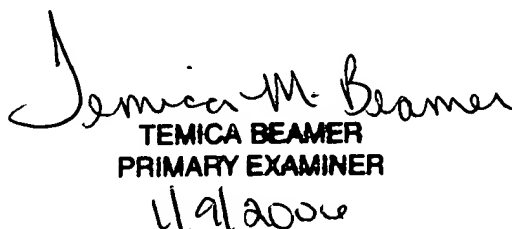 Temica M. Beamer
TEMICA BEAMER
PRIMARY EXAMINER
1/9/2006